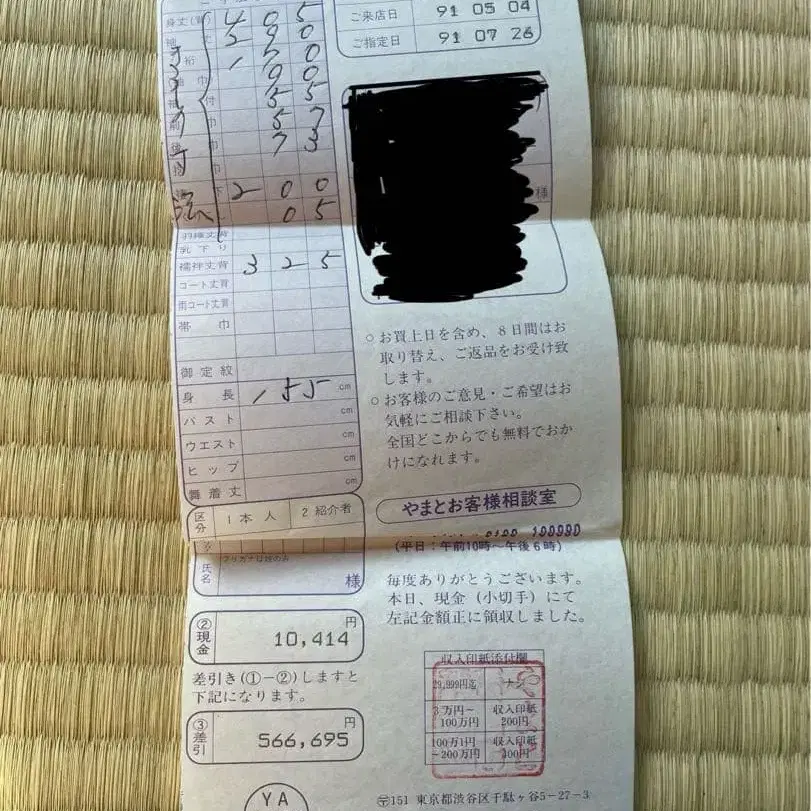 身丈(背) 4 0 5
裄 1 7 0
0 0
5 5
5 7
後巾 7 3
2 0 0
0 5
羽織丈背
乳下り
襦袢丈背 3 2 5
コート丈背
雨コート丈背
帯巾
御定紋
身長 155 cm
バスト cm
ウエスト cm
ヒップ cm
舞着丈
区分 1本人 2紹介者
氏名 様
② 現金 10,414 円
差引き(①-②)しますと
下記になります。
③ 差引 566,695 円
YA
ご来店日 91 05 04
ご指定日 91 07 26
様
○お買上日を含め、8日間はお
取り替え、ご返品をお受け致
します。
○お客様のご意見・ご希望はお
気軽にご相談下さい。
全国どこからでも無料でおか
けになれます。
やまとお客様相談室
(平日：午前10時～午後6時)
毎度ありがとうございます。
本日、現金(小切手)にて
左記金額正に領収しました。
収入印紙添付欄
29,999円迄 ナシ
3万円～100万円 収入印紙200円
100万1円～200万円 収入印紙400円
〒151 東京都渋谷区千駄ヶ谷5-27-3